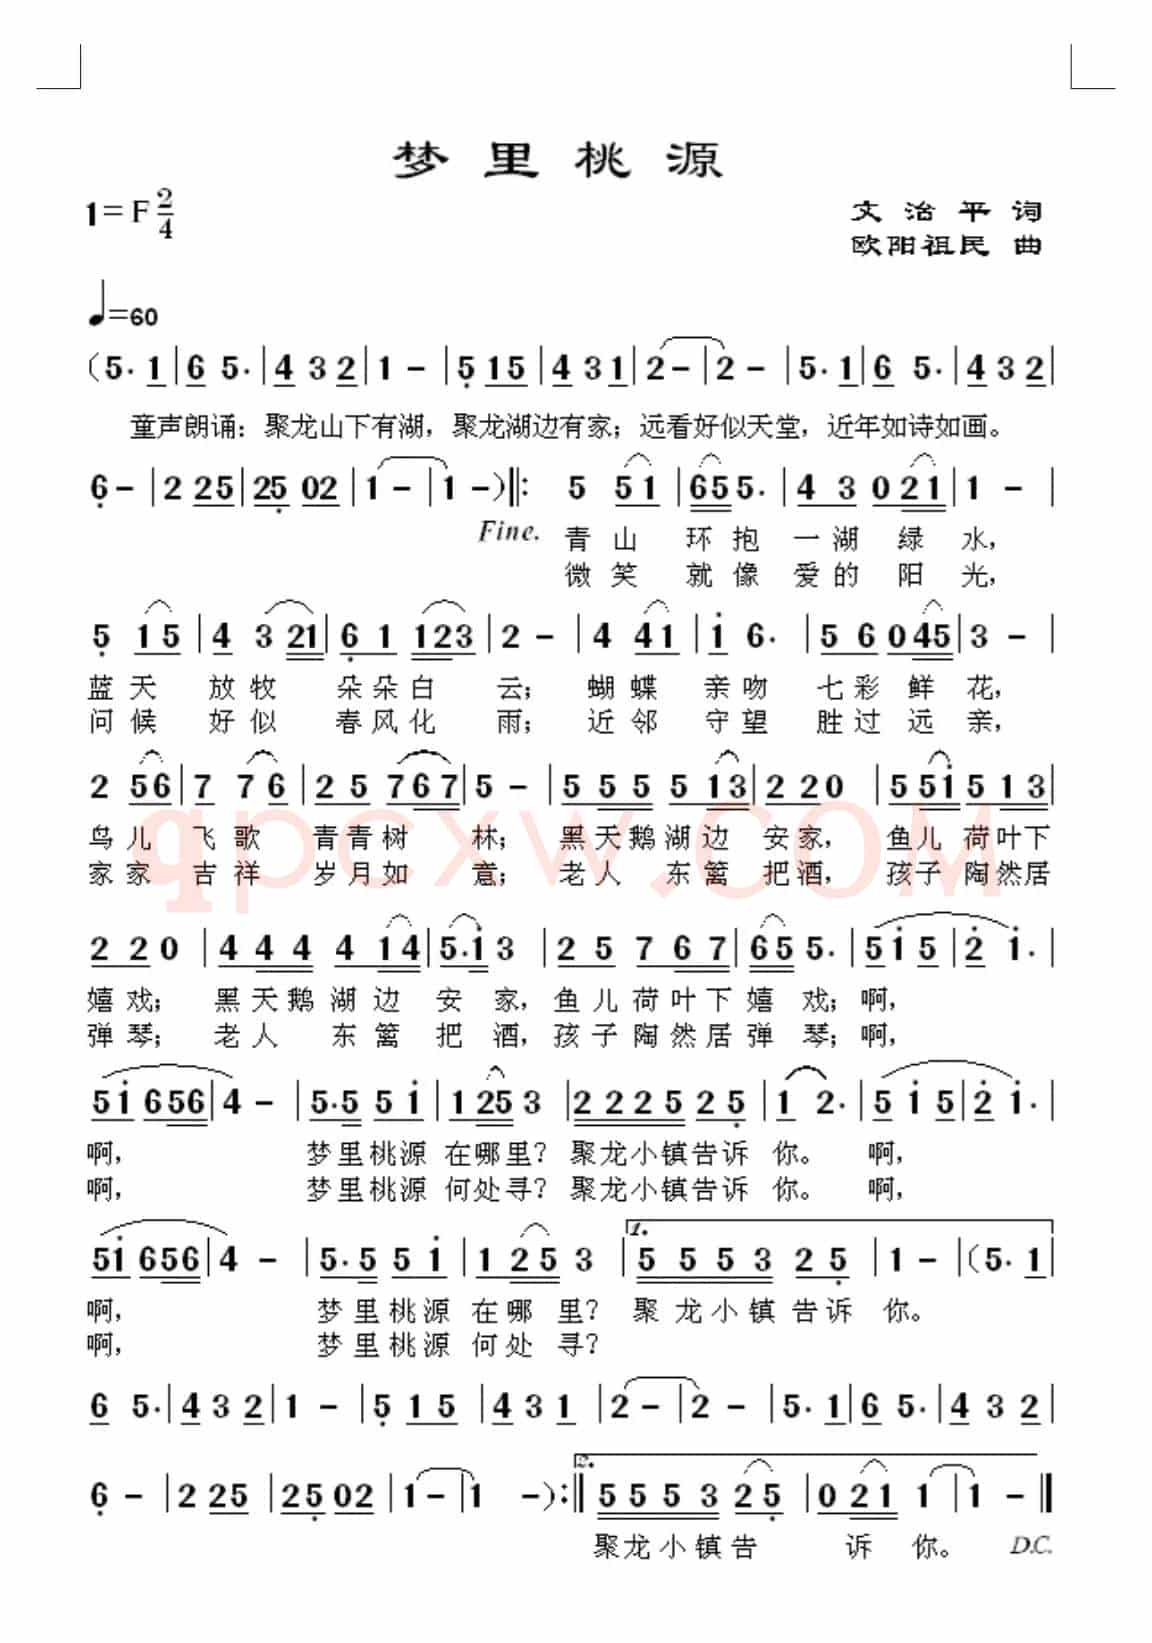 梦里桃源
1=F 2/4
文治平 词
欧阳祖民 曲
♩=60
(5· 1|6 5·|4 3 2|1 –|5 15|4 31|2–|2–|5· 1|6 5·|4 3 2|
童声朗诵：聚龙山下有湖，聚龙湖边有家；远看好似天堂，近年如诗如画。
6–|2 25|25 02|1 –|1 –)‖: 5 51|655·|4 3 021|1 –|
Fine. 青山 环抱 一湖 绿 水，
微笑 就像 爱的 阳 光，
5 15|4 3 21|6 1 123|2 –|4 41|i 6·|5 6 045|3 –|
蓝天 放牧 朵朵白 云； 蝴蝶 亲吻 七彩 鲜 花，
问候 好似 春风化 雨； 近邻 守望 胜过 远 亲，
2 56|7 76|2 5 767|5 –|5 5 5 5 13|2 20|5 5i|5 13|
鸟儿 飞歌 青青树 林； 黑天鹅湖边 安家， 鱼儿 荷叶下
家家 吉祥 岁月如 意； 老人 东篱 把酒， 孩子 陶然居
2 20|4 4 4 4 14|5·i 3|2 5 7 67|655·|5 i 5|2 i·|
嬉戏； 黑天鹅湖边 安 家，鱼儿荷叶下嬉 戏；啊，
弹琴； 老人 东篱 把 酒，孩子陶然居弹 琴；啊，
5i 656|4 –|5·5 5 i|1 25 3|2 2 2 5 25|1 2·|5 i 5|2 i·|
啊， 梦里桃源 在哪里？聚龙小镇告诉 你。 啊，
啊， 梦里桃源 何处寻？聚龙小镇告诉 你。 啊，
5i 656|4 –|5·5 5 i|1 25 3|1. 5 5 5 3 25|1 –|(5· 1|
啊， 梦里桃源 在哪 里？ 聚龙小镇告诉 你。
啊， 梦里桃源 何处 寻？
6 5·|4 3 2|1 –|5 15|4 31|2–|2–|5· 1|6 5·|4 3 2|
6 –|2 25|2502|1–|1 –):‖2. 5 5 5 3 25|021 1|1 –‖
聚龙小镇告 诉 你。 D.C.
qpcxw.COM